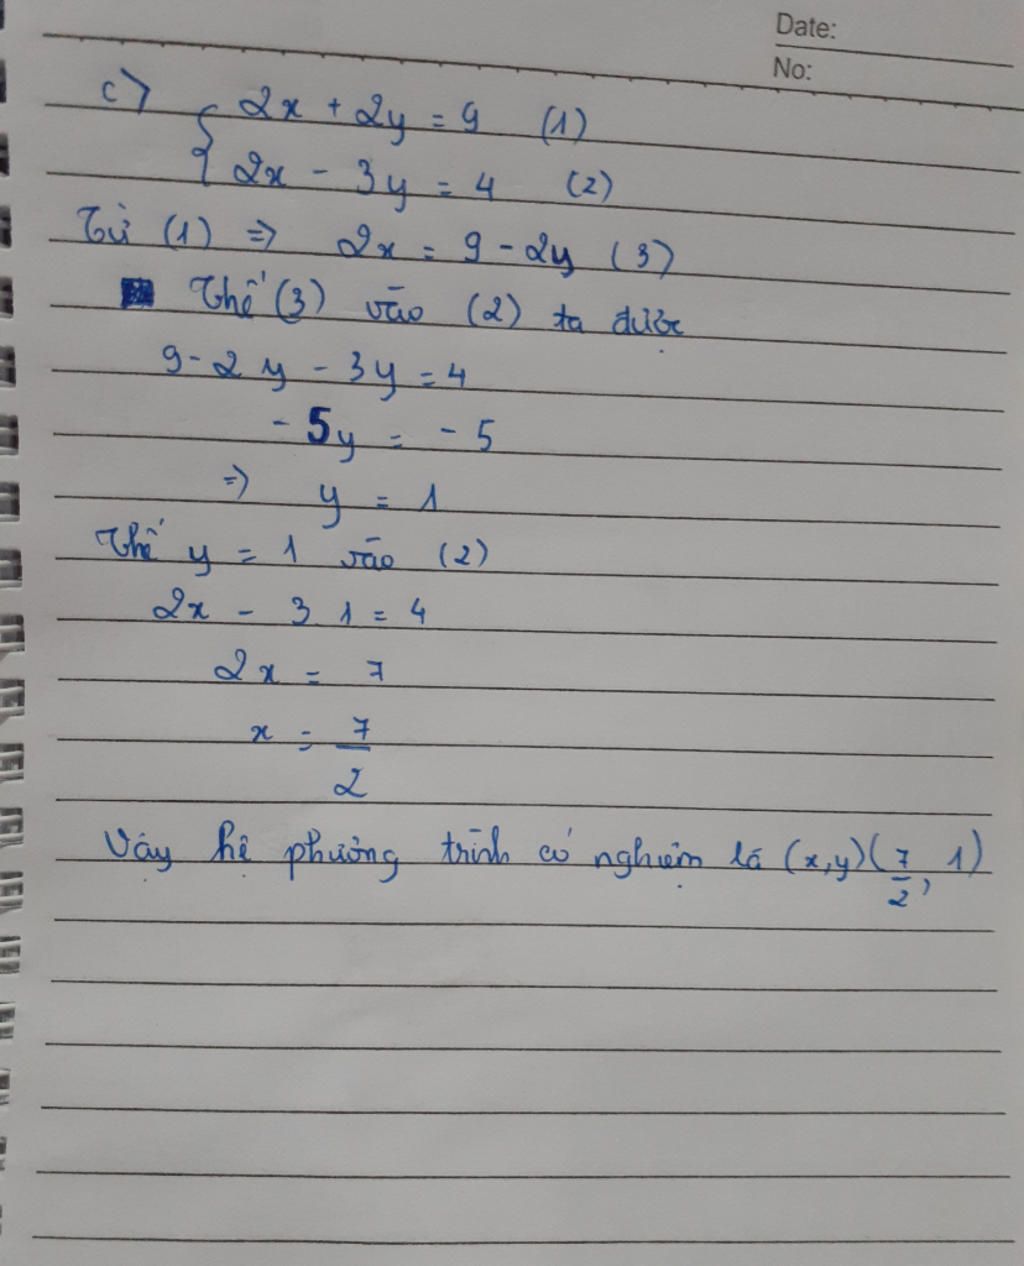 Date:
No:
c) { 2x + 2y = 9 (1)
2x - 3y = 4 (2)
Từ (1) => 2x = 9 - 2y (3)
Thế (3) vào (2) ta được
9 - 2y - 3y = 4
- 5y = - 5
=> y = 1
Thế y = 1 vào (2)
2x - 3.1 = 4
2x = 7
x = 7/2
Vậy hệ phường trình có nghiệm là (x,y)(7/2, 1)